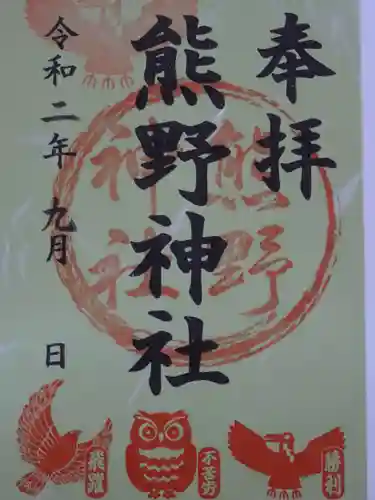 奉拝
熊野神社
熊野
神社
令和二年 九月 日
飛躍
不苦労
勝利